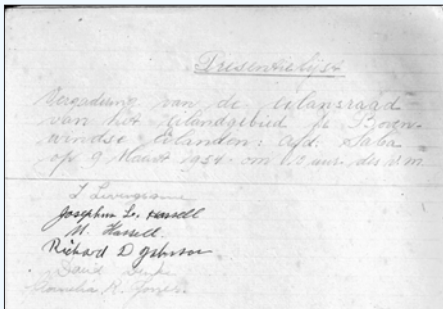 Presentielijst
Vergadering van de eilansraad
van het Eilandgebied de Boven-
windse Eilanden: afd: Saba
op 9 Maart 1954 om 10 uur des v.m.
Josephus L. Hassell
M. Hassell
Richard D Johnson
David
Cornelia R. Jones